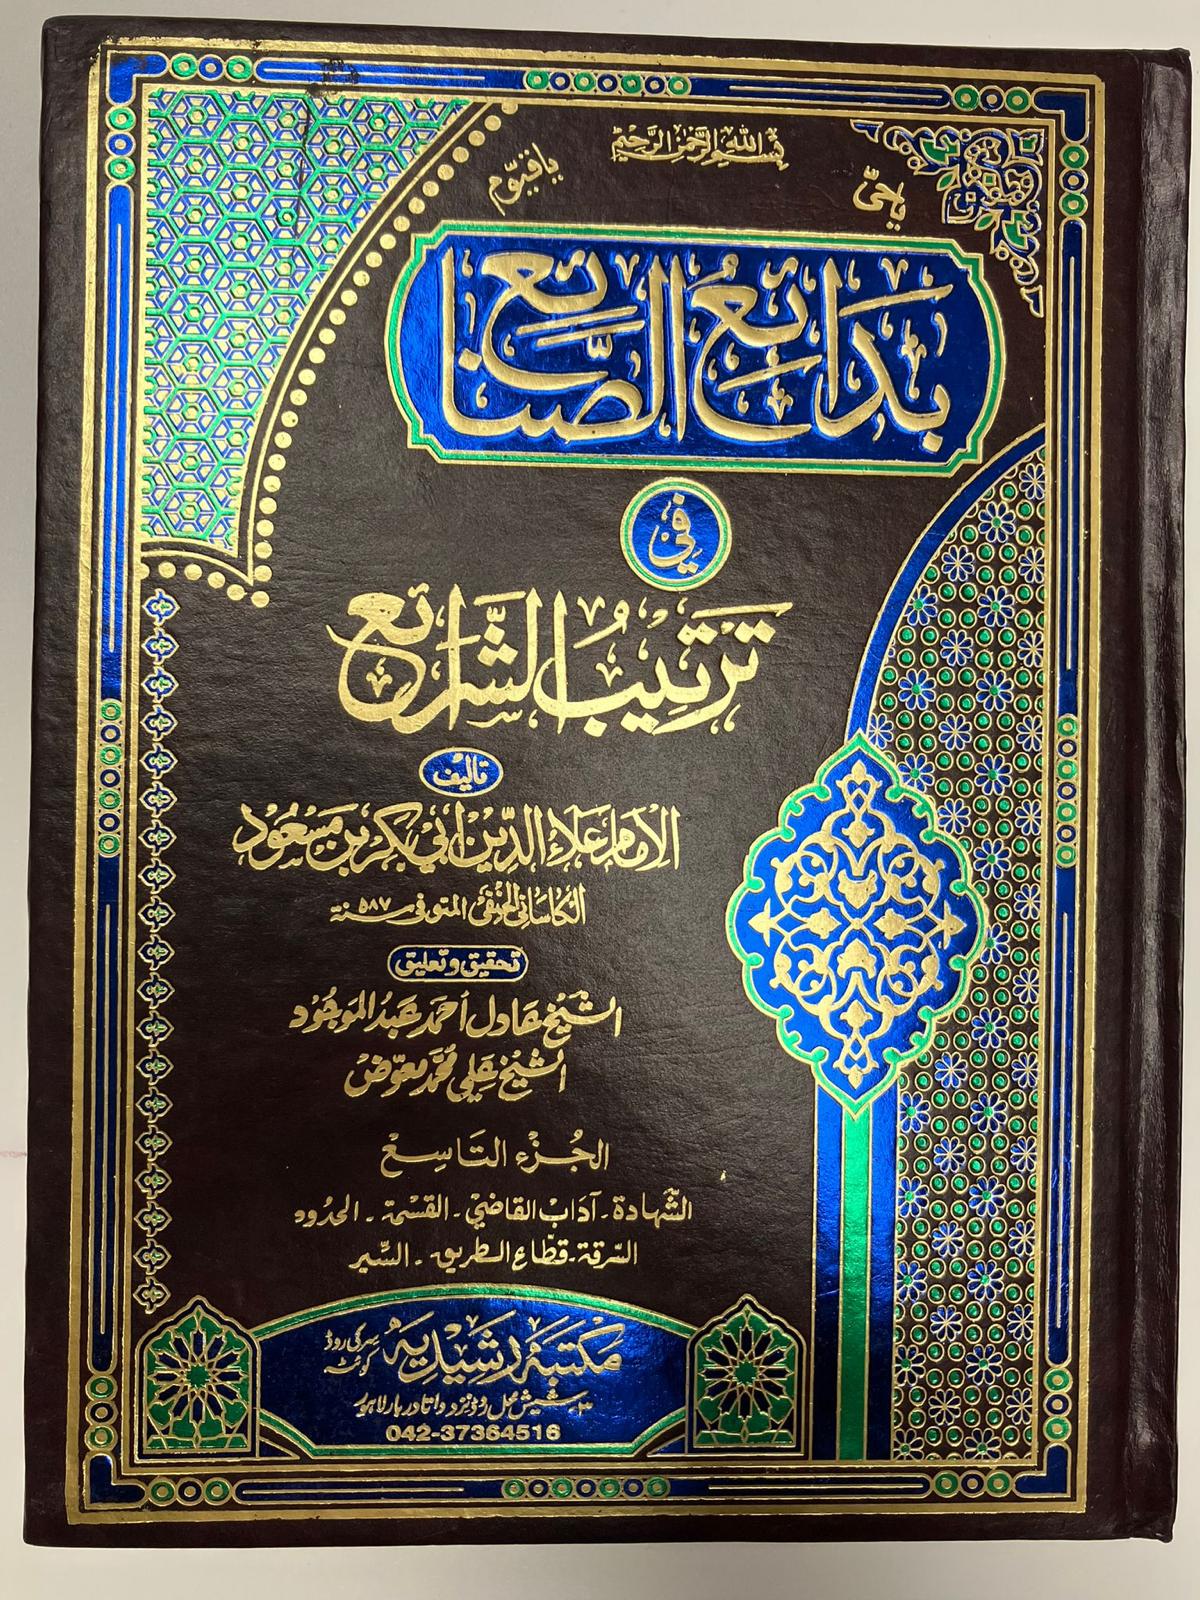 بسم الله الرحمن الرحيم
يا حيّ
يا قيّوم
بَدَائِعُ الصَّنَائِعِ
فِي
تَرتِيبُ الشَّرائِع
تأليف
الإمام علاء الدين أبي بكر بن مسعود
الكاساني الحنفي المتوفى سنة ٥٨٧
تحقيق و تعليق
الشيخ عادل أحمد عبد الموجود
الشيخ علي محمد معوّض
الجُزء التاسع
الشّهادة - آداب القاضي - القسمة - الحدود
السّرقة - قطّاع الطريق - السِّير
مكتبه رشيديه
سرکی روڈ
کوئٹہ
۲۔ شیش محل روڈ نزد داتا دربار لاہور
042-37364516